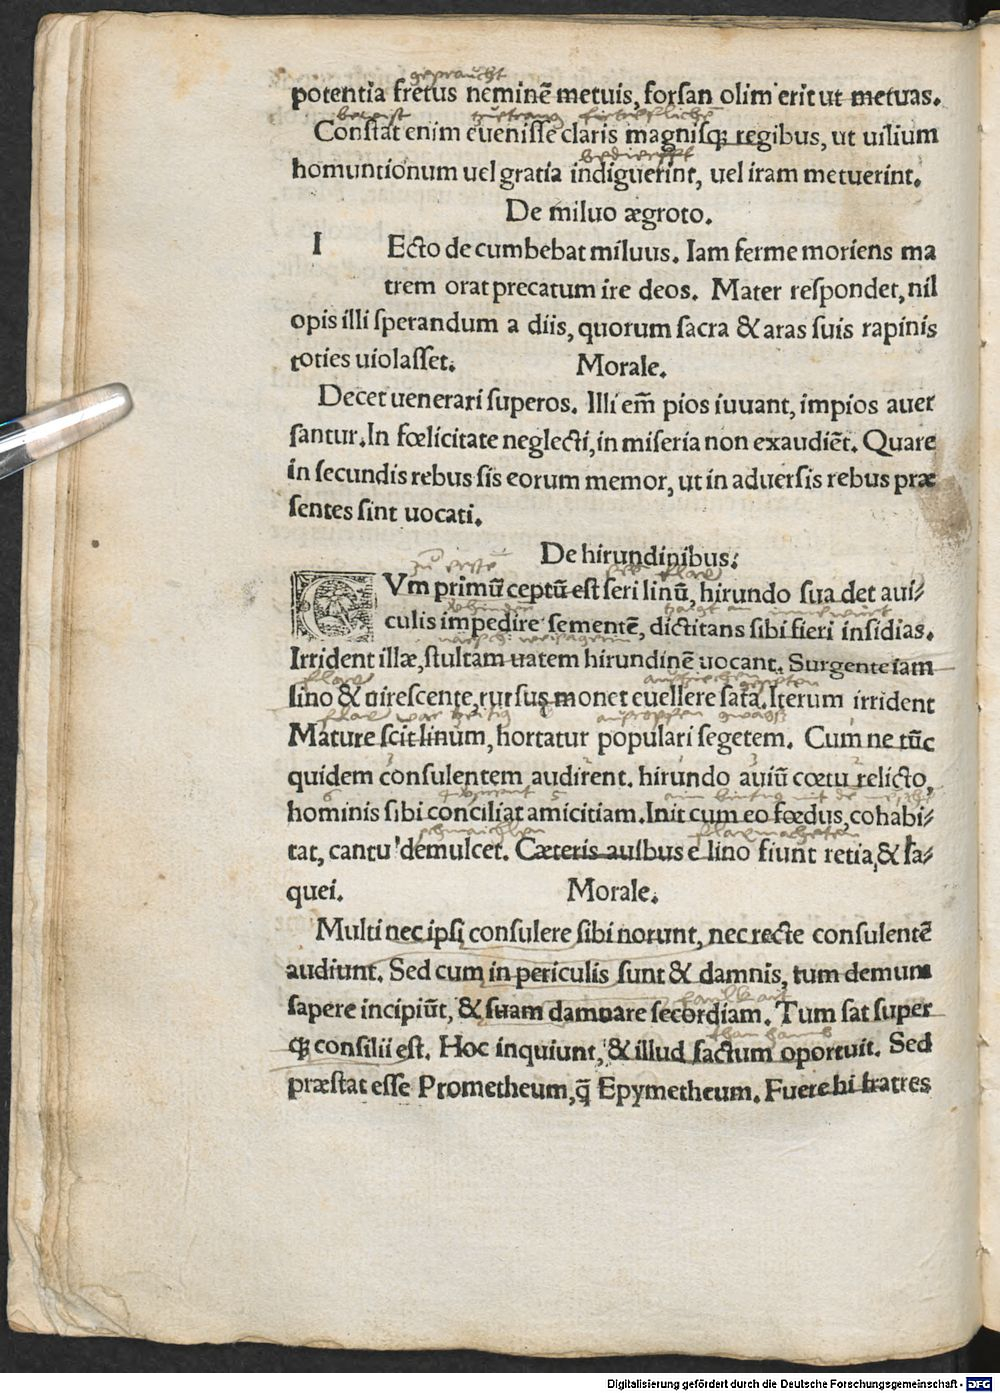 gepraucht
potentia fretus neminē metuis, forsan olim erit ut metuas.
Constat enim euenisse claris magnisq; regibus, ut uilium
homuntionum uel gratia indiguerint, uel iram metuerint.
De miluo ægroto.
I Ecto decumbebat miluus. Iam ferme moriens ma
trem orat precatum ire deos. Mater respondet, nil
opis illi sperandum a diis, quorum sacra & aras suis rapinis
toties uiolasset. Morale.
Decet uenerari superos. Illi em̄ pios iuuant, impios auer
santur. In fœlicitate neglecti, in miseria non exaudiēt. Quare
in secundis rebus sis eorum memor, ut in aduersis rebus præ
sentes sint uocati.
De hirundinibus:
CVm primū ceptū est seri linū, hirundo suadet aui/
culis impedire sementē, dictitans sibi fieri insidias.
Irrident illæ, stultam uatem hirundinē uocant. Surgente iam
flax
lino & uirescente, rursus monet euellere sata. Iterum irrident
Mature scit linum, hortatur populari segetem. Cum ne tūc
quidem consulentem audirent. hirundo auiū cœtu relicto,
hominis sibi conciliat amicitiam. Init cum eo fœdus, cohabi/
tat, cantu demulcet. Cæteris auibus e lino fiunt retia, & la/
quei. Morale.
Multi nec ipsi consulere sibi norunt, nec recte consulentē
audiunt. Sed cum in periculis sunt & damnis, tum demum
sapere incipiūt, & suam damnare secordiam. Tum sat super
q; consilii est. Hoc inquiunt, & illud factum oportuit. Sed
præstat esse Prometheum, q̄ Epymetheum. Fuere hi fratres
Digitalisierung gefördert durch die Deutsche Forschungsgemeinschaft - DFG